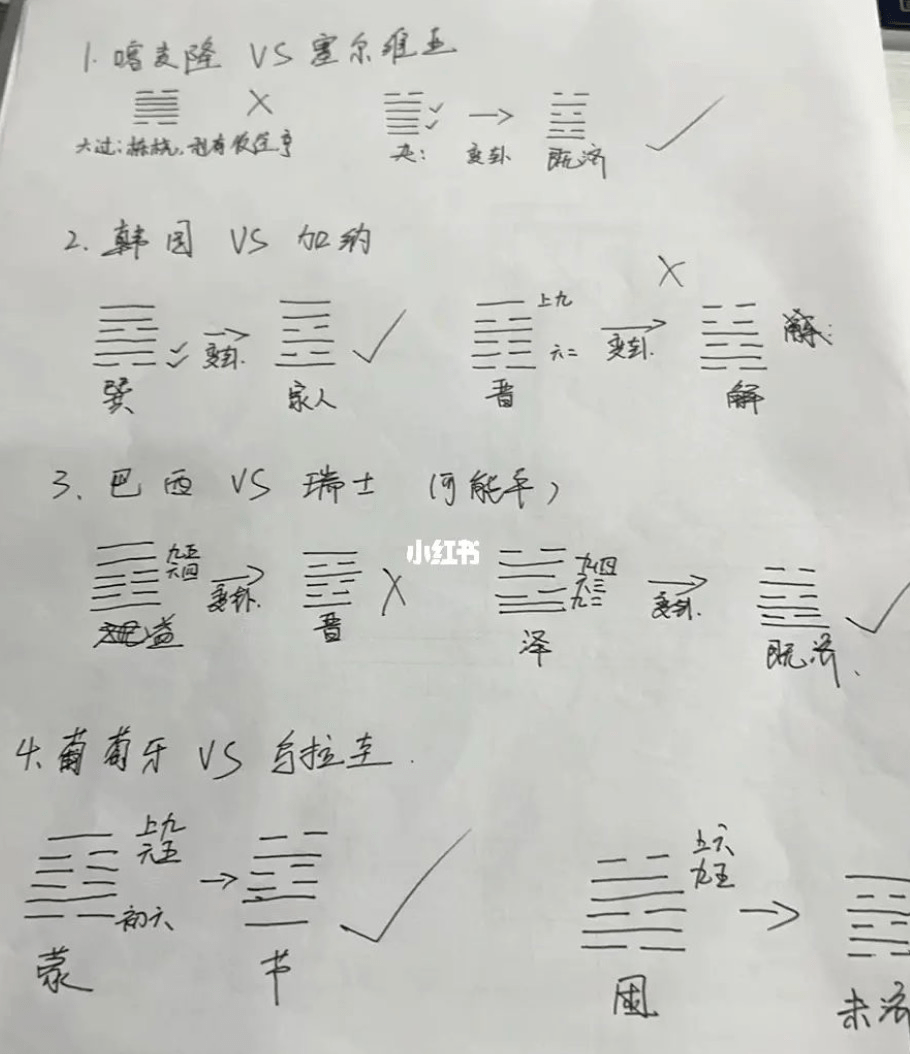 1. 喀麦隆 VS 塞尔维亚
大过: 栋桡, 利有攸往, 亨
夬: 变卦 既济
2. 韩国 VS 加纳
上九
六二
变卦 变卦.
巽 家人 晋 解
3、巴西 VS 瑞士 (可能平)
九五
六四
九四
六三
九二
变卦. 变卦.
益 晋 泽 既济.
小红书
4. 葡萄牙 VS 乌拉圭.
上九
六五
初六
九五
蒙 节 困 未济